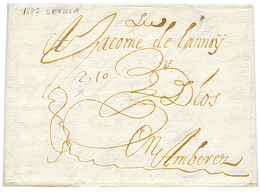 1687 SEVILLA
A Jacome de Lannoy
2:10
Dios
En Amberez